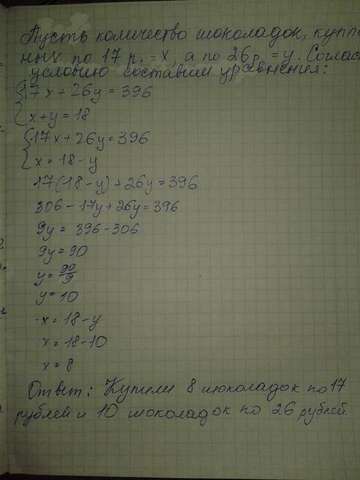 Пусть количество шоколадок, купле
нных по 17 р. = x, а по 26 р. = y. Соглас
условию составим уравнения:
{17x + 26y = 396
{x + y = 18
{17x + 26y = 396
{x = 18 - y
17(18 - y) + 26y = 396
306 - 17y + 26y = 396
9y = 396 - 306
9y = 90
y = 90/9
y = 10
x = 18 - y
x = 18 - 10
x = 8
Ответ: Купили 8 шоколадок по 17
рублей и 10 шоколадок по 26 рублей.